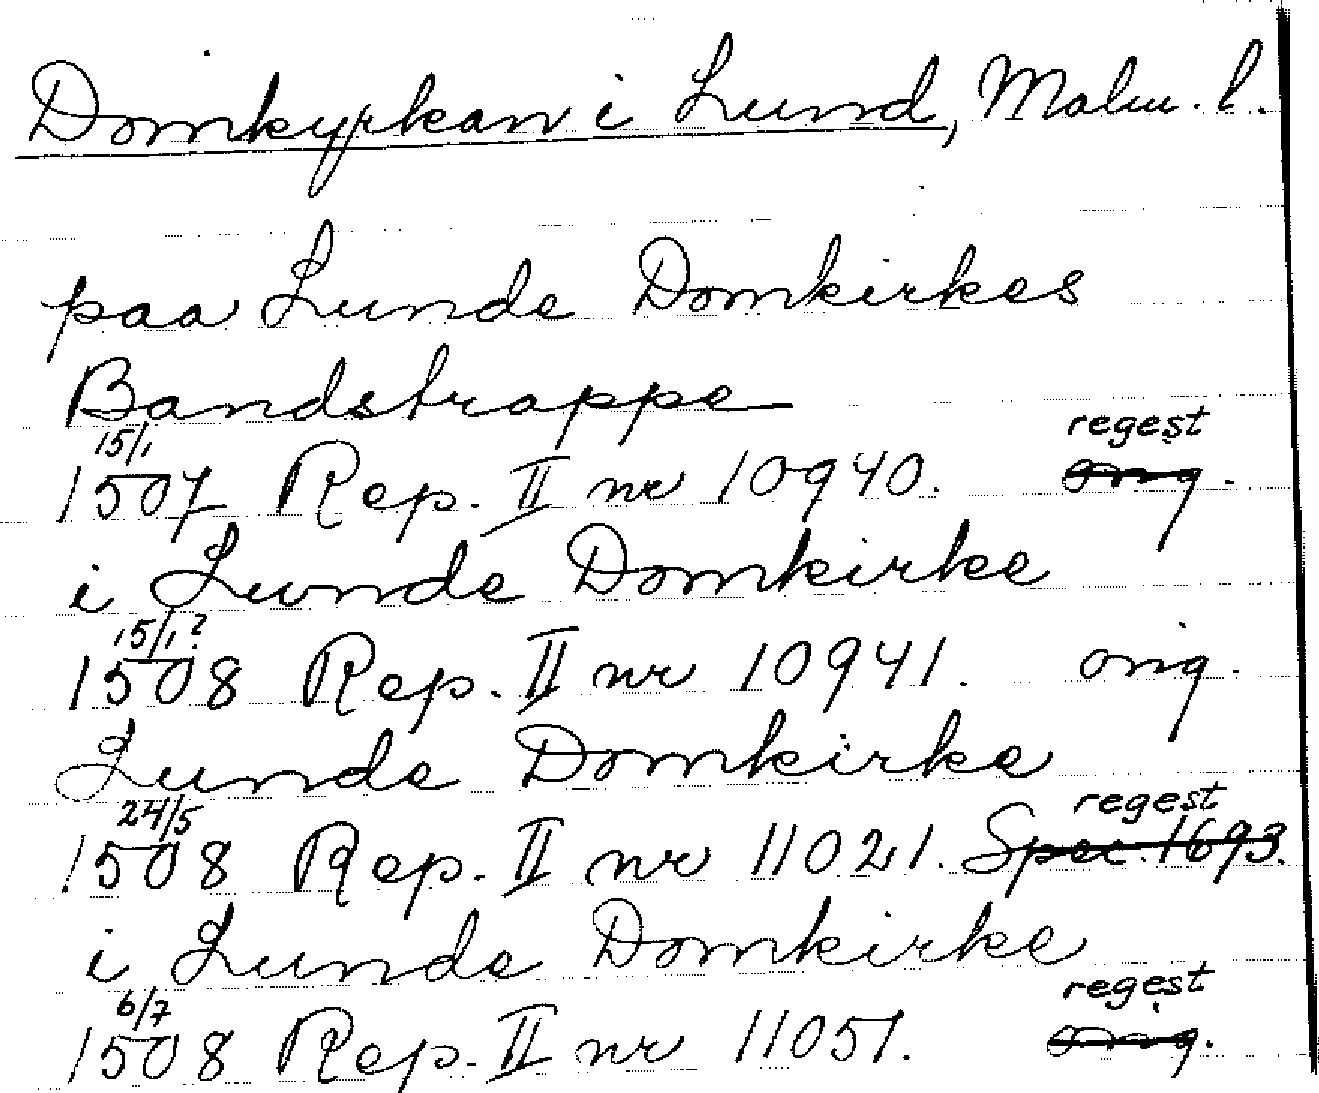 Domkyrkan i Lund, Malm. l.
paa Lunde Domkirkes
Bandstrappe
15/1 regest
1507 Rep. II nr 10940. orig.
i Lunde Domkirke
15/1?
1508 Rep. II nr 10941. orig.
Lunde Domkirke
24/5 regest
1508 Rep. II nr 11021. Spec. 1693.
i Lunde Domkirke
6/7 regest
1508 Rep. II nr 11051. orig.